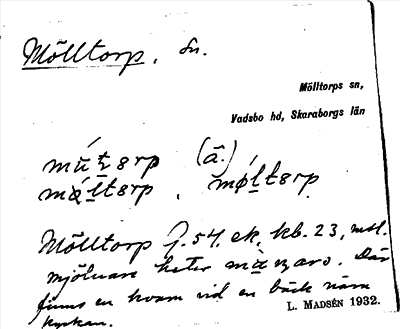 Mölltorp. Sn.
Mölltorps sn,
Vadsbo hd, Skaraborgs län
(ā.)
Mölltorp f. 54. ek. kb. 23, mtl.
mjölnare heter Där
finns en kvarn vid en bäck nära
kyrkan.
L. MADSÉN 1932.